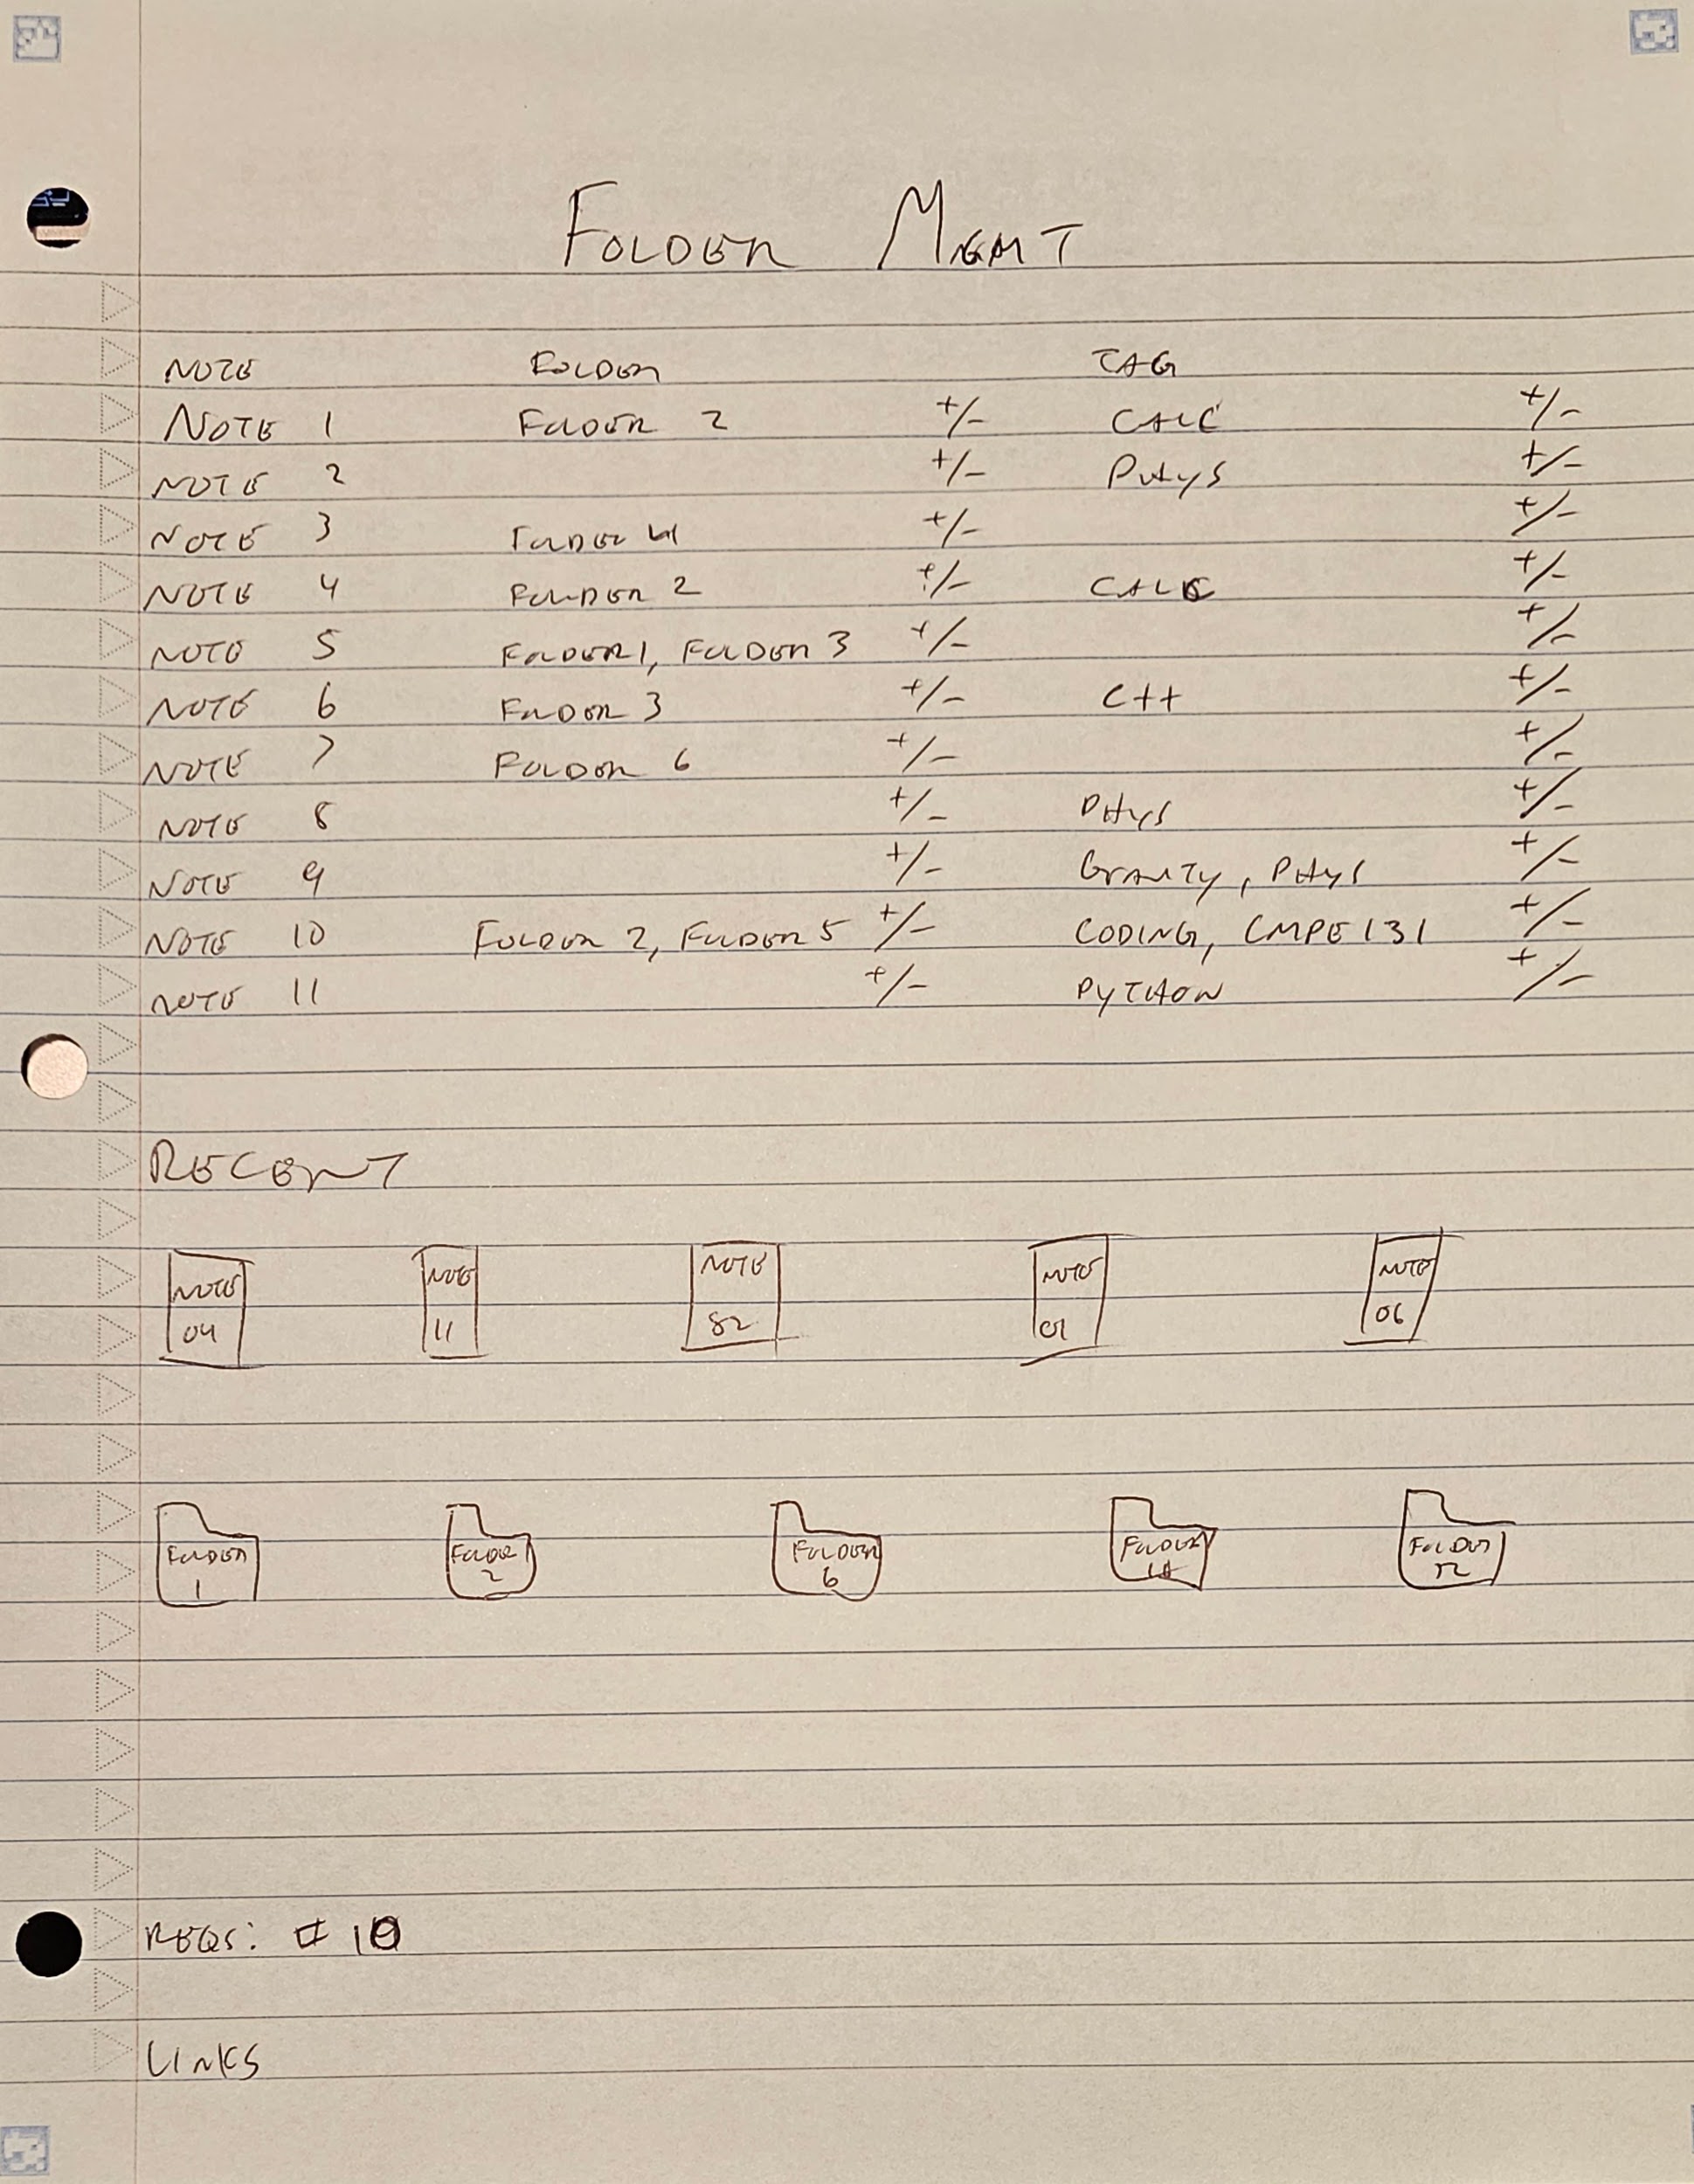 FOLDER MGMT
NOTE FOLDER TAG
NOTE 1 FOLDER 2 +/- CALC +/-
NOTE 2 +/- PHYS +/-
NOTE 3 FOLDER +/- +/-
NOTE 4 FOLDER 2 +/- CALC +/-
NOTE 5 FOLDER 1, FOLDER 3 +/- +/-
NOTE 6 FOLDER 3 +/- C++ +/-
NOTE 7 FOLDER 6 +/- +/-
NOTE 8 +/- PHYS +/-
NOTE 9 +/- GRAVITY, PHYS +/-
NOTE 10 FOLDER 2, FOLDER 5 +/- CODING, CMPE 131 +/-
NOTE 11 +/- PYTHON +/-
RECENT
NOTE NOTE NOTE NOTE NOTE
04 11 82 01 06
FOLDER FOLDER FOLDER FOLDER FOLDER
1 2 6
REQS: # 10
LINKS